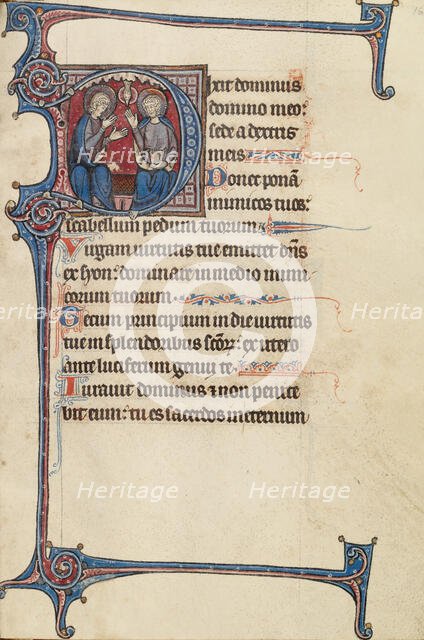 Dixit dominus
domino meo:
sede a dextris
meis
Donec ponã
inimicos tuos:
scabellum pedum tuorum
Virgam virtutis tue emittet dñs
ex syon: dominare in medio inimi
corum tuorum
Tecum principium in die virtutis
tue in splendoribus scõr: ex utero
ante luciferum genui te
Iuravit dominus et non penite
bit eum: tu es sacerdos in eternum
Heritage Heritage
Heritage Heritage
Heritage Heritage